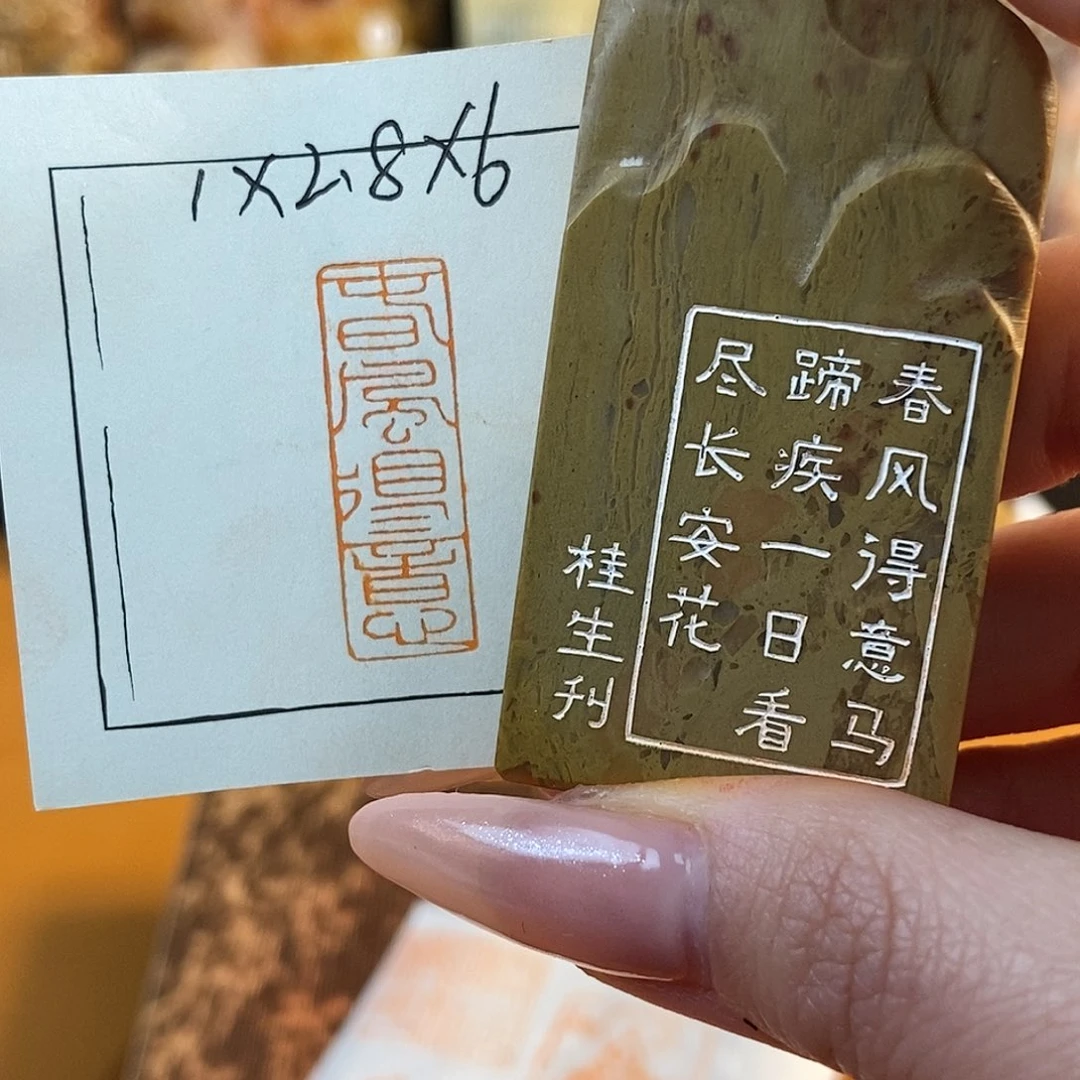 1×2.8×6
春風得意
春风得意马
蹄疾一日看
尽长安花
桂生刊